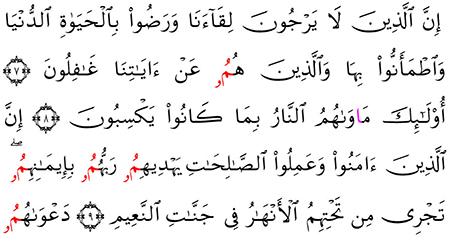 إِنَّ ٱلَّذِينَ لَا يَرْجُونَ لِقَآءَنَا وَرَضُوا۟ بِٱلْحَيَوٰةِ ٱلدُّنْيَا
وَٱطْمَأَنُّوا۟ بِهَا وَٱلَّذِينَ هُمُۥ عَنْ ءَايَٰتِنَا غَٰفِلُونَ ۝٧
أُو۟لَٰٓئِكَ مَاوَىٰهُمُ ٱلنَّارُ بِمَا كَانُوا۟ يَكْسِبُونَ ۝٨ إِنَّ
ٱلَّذِينَ ءَامَنُوا۟ وَعَمِلُوا۟ ٱلصَّٰلِحَٰتِ يَهْدِيهِمُۥ رَبُّهُمُۥ بِإِيمَٰنِهِمُۥۖ
تَجْرِى مِن تَحْتِهِمُ ٱلْأَنْهَٰرُ فِى جَنَّٰتِ ٱلنَّعِيمِ ۝٩ دَعْوَىٰهُمُۥ